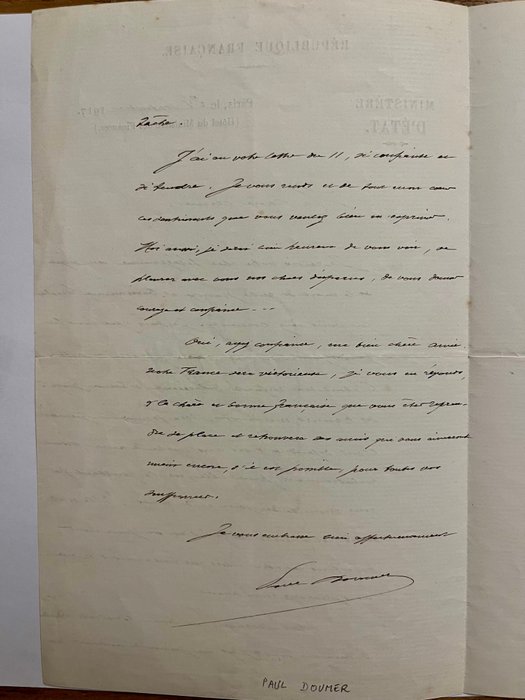 tâche.
J'ai eu votre lettre du 11, si confiante et
si tendre. Je vous rends et de tout mon cœur
ces sentiments que vous voulez bien m'exprimer.
Moi aussi, je serai bien heureux de vous voir, de
pleurer avec vous nos chers disparus, de vous donner
courage et confiance...
Oui, ayez confiance, ma bien chère amie.
Notre France sera victorieuse, je vous en réponds,
et la chère et bonne française que vous êtes
place et retrouvera des amis que vous aimeront
mieux encore, s'il est possible, pour toutes vos
souffrances.
Je vous embrasse bien affectueusement
Paul Doumer
PAUL DOUMER
RÉPUBLIQUE FRANÇAISE.
MINISTÈRE
D'ÉTAT.
Paris, le 1917.